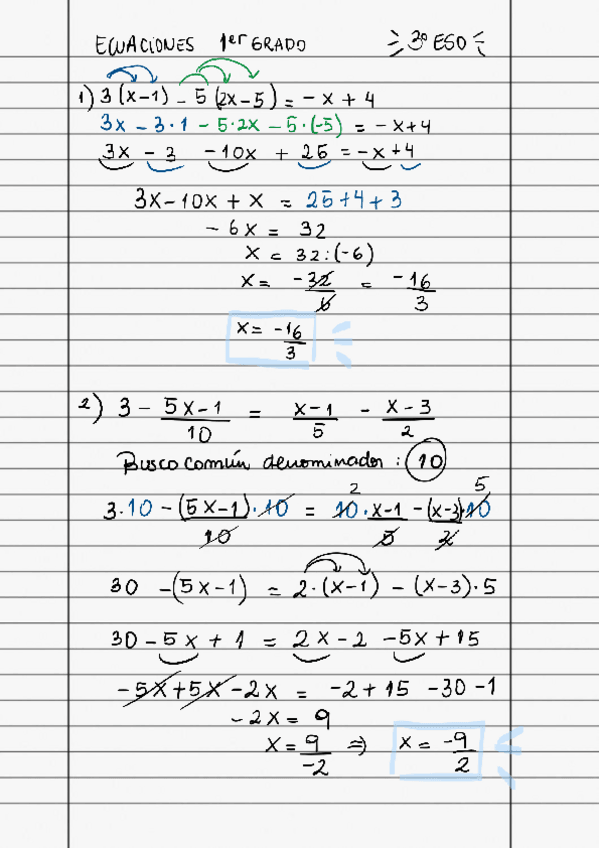 ECUACIONES 1er GRADO 3º ESO
1) 3(x-1) - 5(2x-5) = -x + 4
3x - 3·1 - 5·2x - 5·(-5) = -x+4
3x - 3 - 10x + 25 = -x+4
3x - 10x + x = 25 + 4 + 3
- 6x = 32
x = 32:(-6)
x = -32/6 = -16/3
x = -16/3
2) 3 - 5x-1/10 = x-1/5 - x-3/2
Busco común denominador: 10
2 5
3·10 - (5x-1)·10/10 = 10·x-1/5 - (x-3)·10/2
30 - (5x-1) = 2·(x-1) - (x-3)·5
30 - 5x + 1 = 2x - 2 - 5x + 15
- 5x + 5x - 2x = -2 + 15 - 30 - 1
- 2x = 9
x = 9/-2 ⇒ x = -9/2